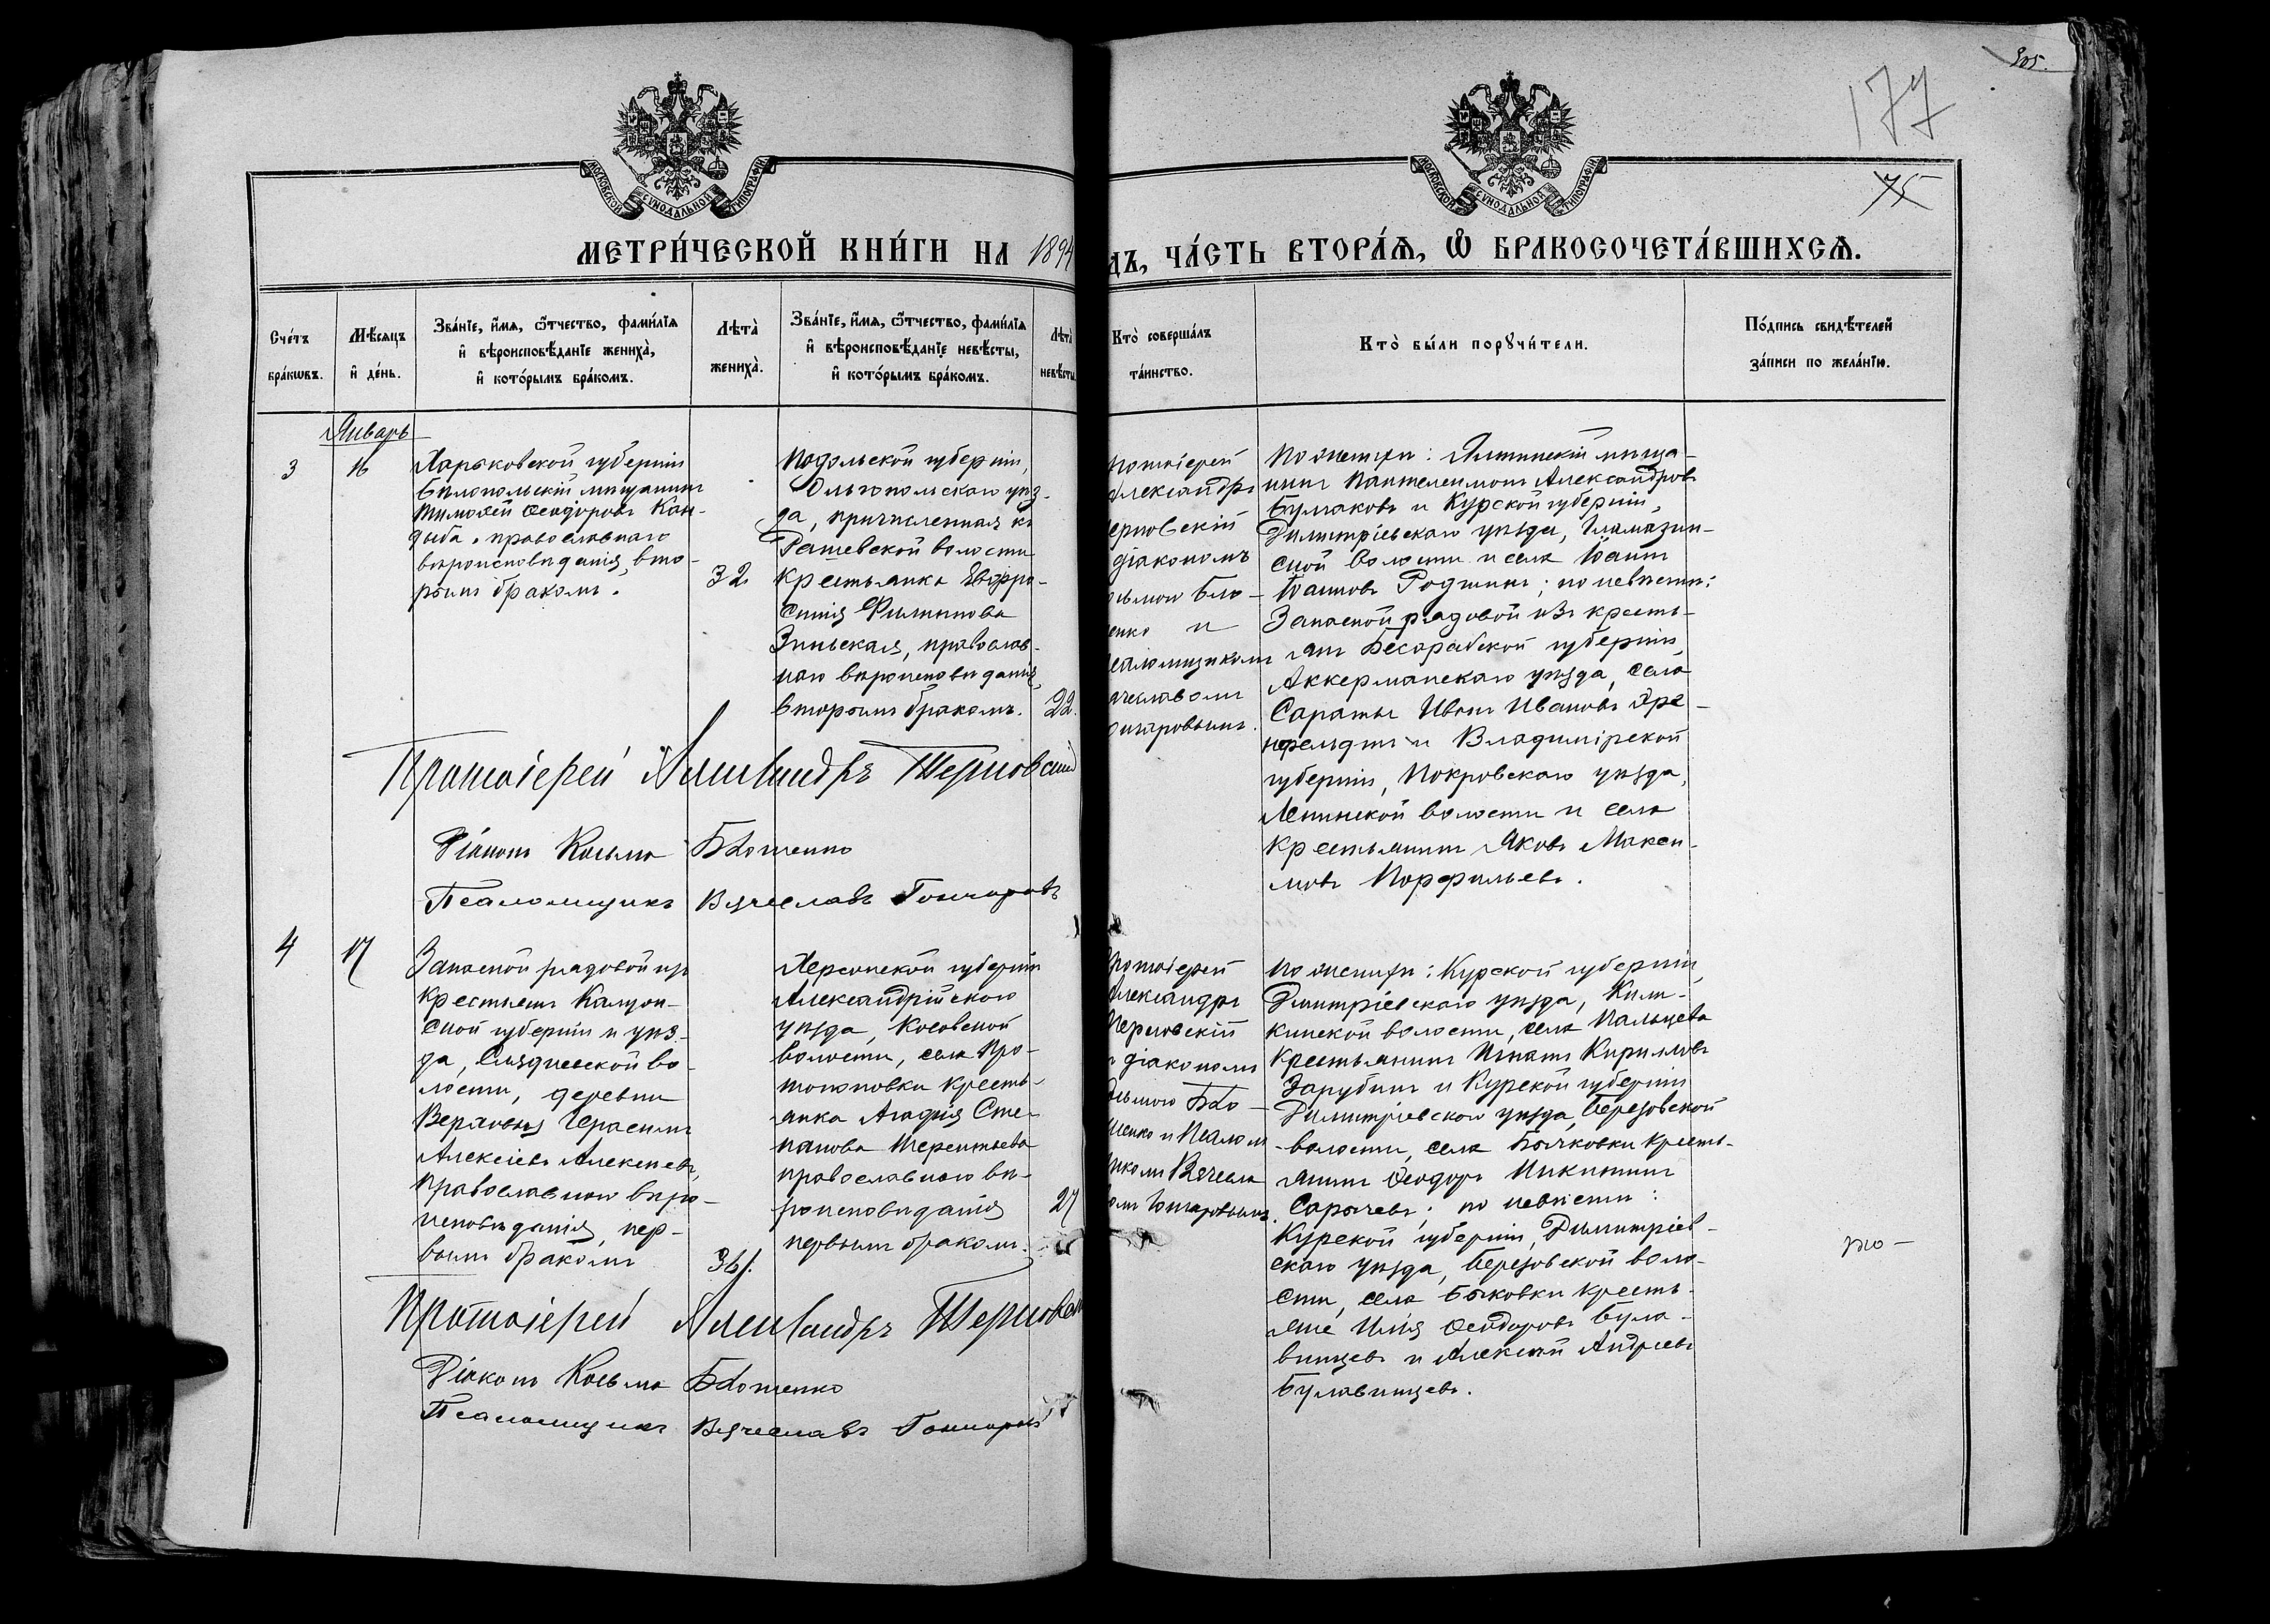 305.
177
75
МОСКОВСКОЙ СѴНОДАЛЬНОЙ ТИПОГРАФІИ
МОСКОВСКОЙ СѴНОДАЛЬНОЙ ТИПОГРАФІИ
МЕТРИ́ЧЕСКОЙ КНИ́ГИ НА 1894
ДЪ, ЧА́СТЬ ВТОРА́Ѧ, Ѽ БРАКОСОЧЕТА́ВШИХСѦ.
Сче́тъ
бра́кѡвъ.
Мѣ́сяцъ
и҆ де́нь.
Зва́нїе, и҆́мѧ, ѻ҆́тчество, фами́лїѧ
и҆ вѣроисповѣ́данїе жениха̀,
и҆ кото́рымъ бра́комъ.
Лѣта̀
жениха̀.
Зва́нїе, и҆́мѧ, ѻ҆́тчество, фами́лїѧ
и҆ вѣроисповѣ́данїе невѣ́сты,
и҆ кото́рымъ бра́комъ.
Лѣта̀
невѣсты
Кто̀ соверша́лъ
та́инство.
Кто̀ бы́ли порꙋчи́тели.
По́дпись свидѣ́телей
за́писи по жела́нїю.
Январь
3
16
Харьковской губерніи
Бѣлопольскій мѣщанинъ
Тимоѳей Ѳеодоровъ Кан-
дыба, православнаго
вѣроисповѣданія, вто-
рымъ бракомъ.
32
Подольской губерніи,
Ольгопольскаго уѣз-
да, причисленная къ
волости
крестьянка Евфро-
синія Филиппова
Зиньская, православ-
наго вѣроисповѣданія,
вторымъ бракомъ.
22.
ротоіерей
Александръ
ерновскій
діакономъ
осьмою Бло-
енко и
саломщикомъ
ячеславомъ
ончаровымъ.
По женихѣ: Ялтинскій мѣща-
нинъ Пантелеимонъ Александровъ
Булгаковъ и Курской губерніи,
Димитріевскаго уѣзда,
ской волости и села Іоаннъ
Іоанновъ Родинъ; по невѣстѣ:
Запасной рядовой изъ кресть-
янъ Бесарабской губерніи,
Аккерманскаго уѣзда, села
Сараты Иванъ Ивановъ Эре-
нфельдтъ и Владимірской
губерніи, Покровскаго уѣзда,
волости и села
крестьянинъ Яковъ Макси-
мовъ Порфильевъ.
Протоіерей Александръ Терновскій
Діаконъ Косьма Блошенко
Псаломщикъ Вячеславъ Гончаровъ
4
17
Запасной рядовой изъ
крестьянъ Калуж-
ской губерніи и уѣз-
да, во-
лости, деревни
Герасимъ
Алексіевъ Алексѣевъ,
православнаго вѣро-
исповѣданія, пер-
вымъ бракомъ
36.
Херсонской губерніи
Александрійскаго
уѣзда, Косовской
волости, села Про-
топоповки кресть-
янка Агафія Сте-
панова Терентьева
православнаго вѣ-
роисповѣданія
первымъ бракомъ.
27
ротоіерей
Александръ
Терновскій
и діакономъ
осьмою Бло-
шенко и Псалом-
щикомъ Вячесла-
вомъ Гончаровымъ.
По женихѣ: Курской губерніи,
Димитріевскаго уѣзда, Кили-
кинской волости, села Пальцева
крестьянинъ Игнатъ Кирилловъ
Зарубинъ и Курской губерніи
Димитріевскаго уѣзда, Березовской
волости, села Бычковки кресть-
янинъ Ѳеодоръ Никитинъ
Сарычевъ; по невѣстѣ:
Курской губерніи, Димитріев-
скаго уѣзда, Березовской воло-
сти, села Быковки кресть-
яне Илія Ѳеодоровъ Була-
винцевъ и Алексѣй Андреевъ
Булавинцевъ.
Протоіерей Александръ Терновск
Діаконъ Косьма Блошенко
Псаломщикъ Вячеславъ Гончаровъ